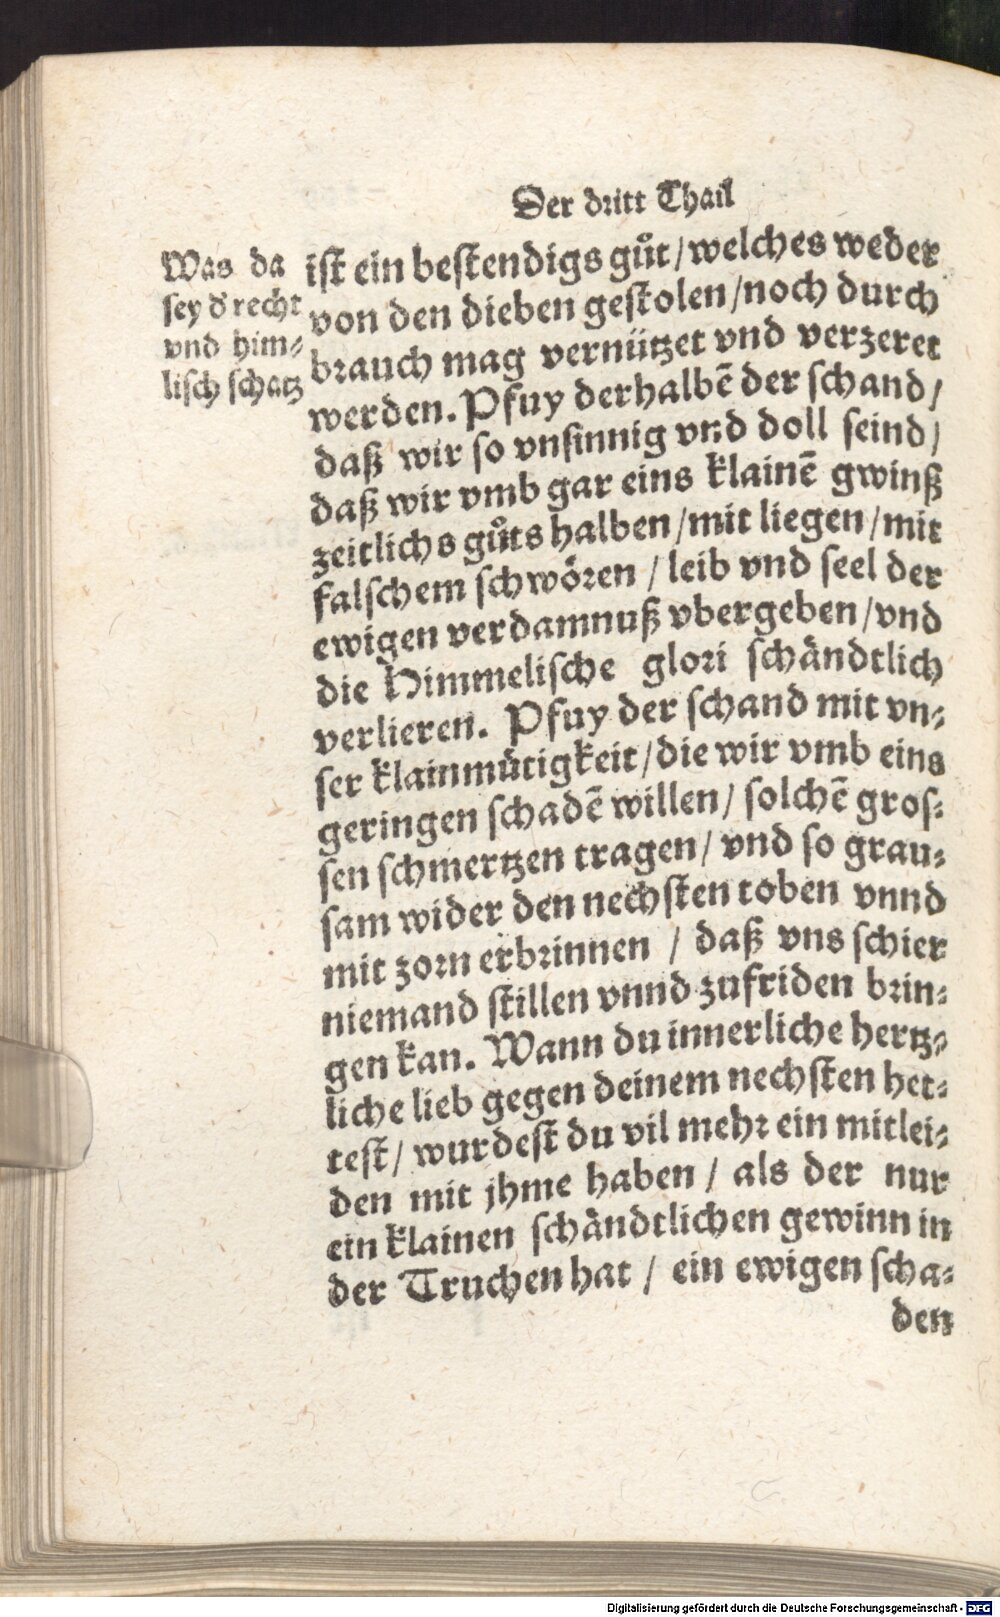 Der dritt Thail
Was da
sey d' recht
vnd him⸗
lisch schatz
ist ein bestendigs gůt / welches weder
von den dieben gestolen / noch durch
brauch mag vernützet vnd verzeret
werden. Pfuy derhalbē der schand /
daß wir so vnsinnig vnd doll seind /
daß wir vmb gar eins klainē gwinß
zeitlichs gůts halben / mit liegen / mit
falschem schwören / leib vnd seel der
ewigen verdamnuß vbergeben / vnd
die Himmelische glori schändtlich
verlieren. Pfuy der schand mit vn⸗
ser klainmütigkeit / die wir vmb eins
geringen schadē willen / solchē gros⸗
sen schmertzen tragen / vnd so grau⸗
sam wider den nechsten toben vnnd
mit zorn erbrinnen / daß vns schier
niemand stillen vnnd zufriden brin⸗
gen kan. Wann du innerliche hertz⸗
liche lieb gegen deinem nechsten het⸗
test / wurdest du vil mehr ein mitlei⸗
den mit jhme haben / als der nur
ein klainen schändtlichen gewinn in
der Truchen hat / ein ewigen scha⸗
den
Digitalisierung gefördert durch die Deutsche Forschungsgemeinschaft - DFG